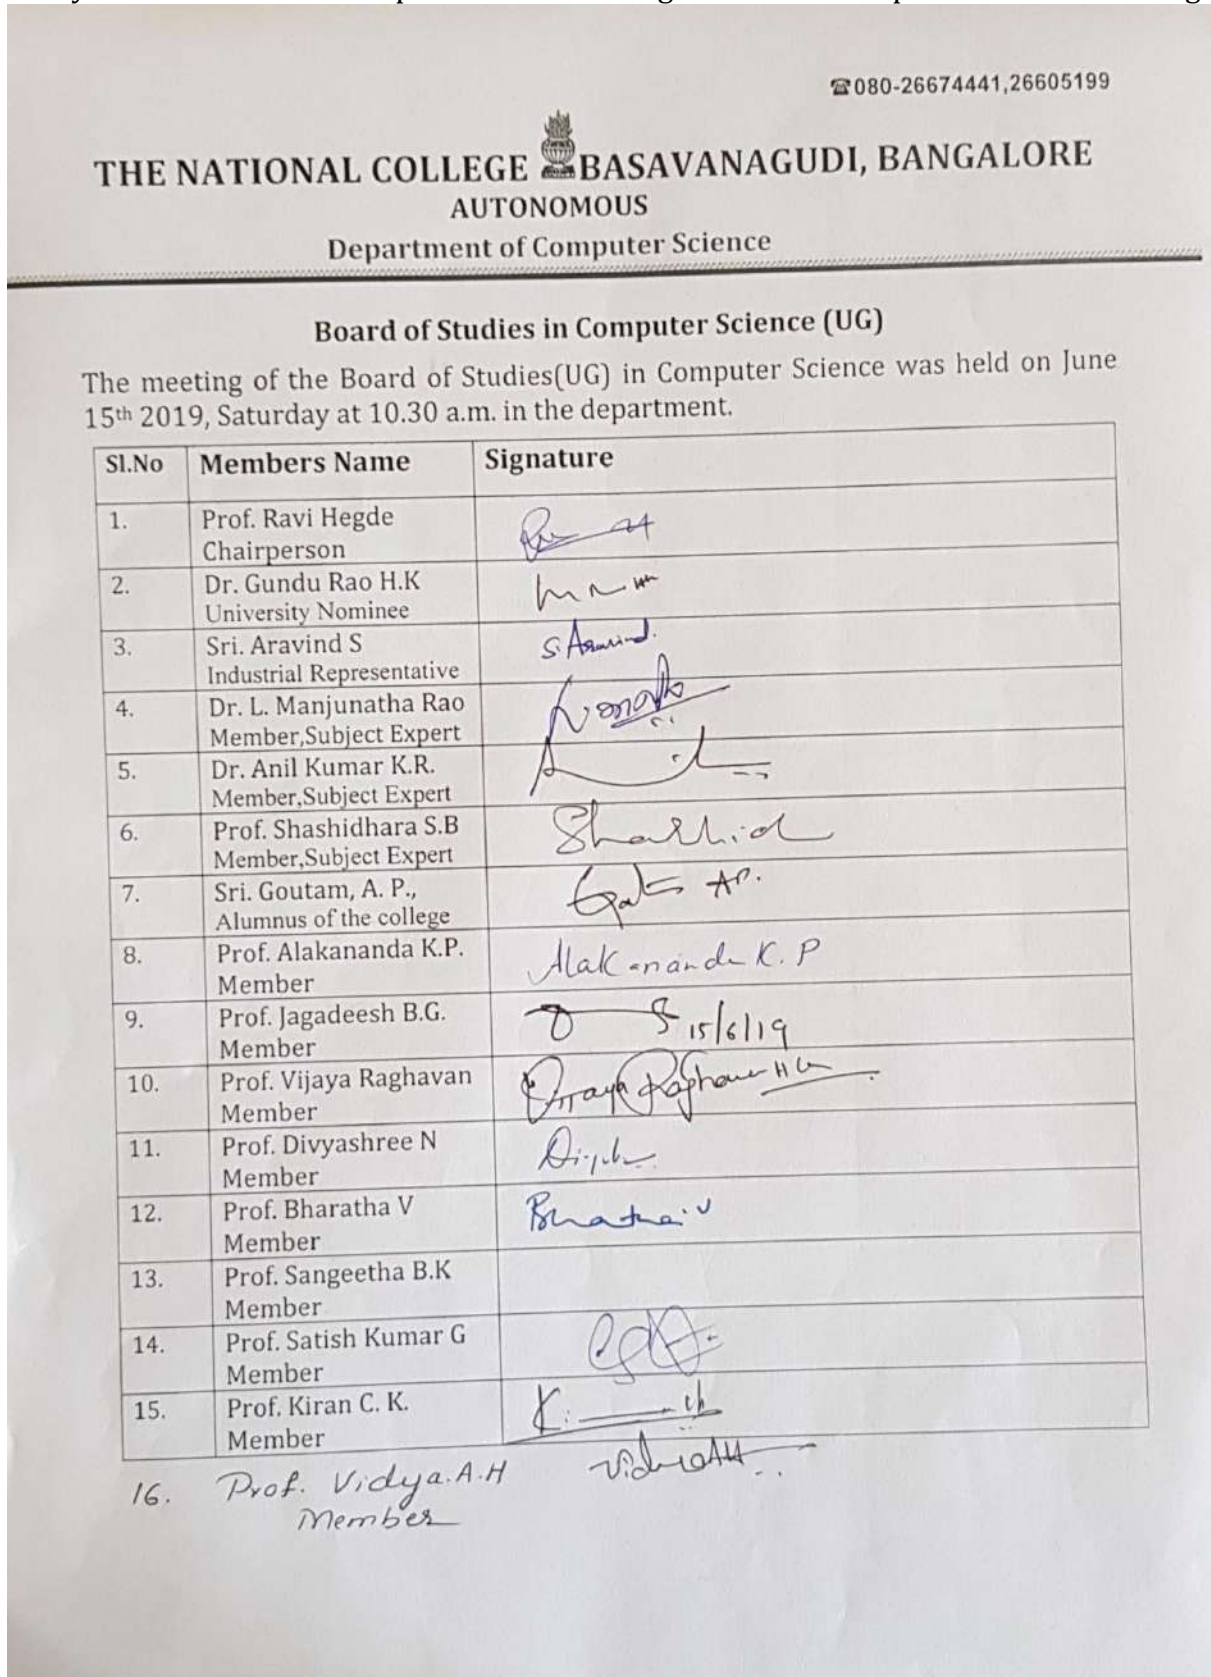 ☎080-26674441,26605199
THE NATIONAL COLLEGE BASAVANAGUDI, BANGALORE
AUTONOMOUS
Department of Computer Science
Board of Studies in Computer Science (UG)
The meeting of the Board of Studies(UG) in Computer Science was held on June
15th 2019, Saturday at 10.30 a.m. in the department.
Sl.No Members Name Signature
1. Prof. Ravi Hegde
Chairperson
2. Dr. Gundu Rao H.K
University Nominee
3. Sri. Aravind S S. Aravind.
Industrial Representative
4. Dr. L. Manjunatha Rao
Member,Subject Expert
5. Dr. Anil Kumar K.R.
Member,Subject Expert
6. Prof. Shashidhara S.B
Member,Subject Expert
7. Sri. Goutam, A. P., AP.
Alumnus of the college
8. Prof. Alakananda K.P. Alakananda K. P
Member
9. Prof. Jagadeesh B.G. 15/6/19
Member
10. Prof. Vijaya Raghavan
Member
11. Prof. Divyashree N
Member
12. Prof. Bharatha V
Member
13. Prof. Sangeetha B.K
Member
14. Prof. Satish Kumar G
Member
15. Prof. Kiran C. K.
Member
16. Prof. Vidya.A.H
Member